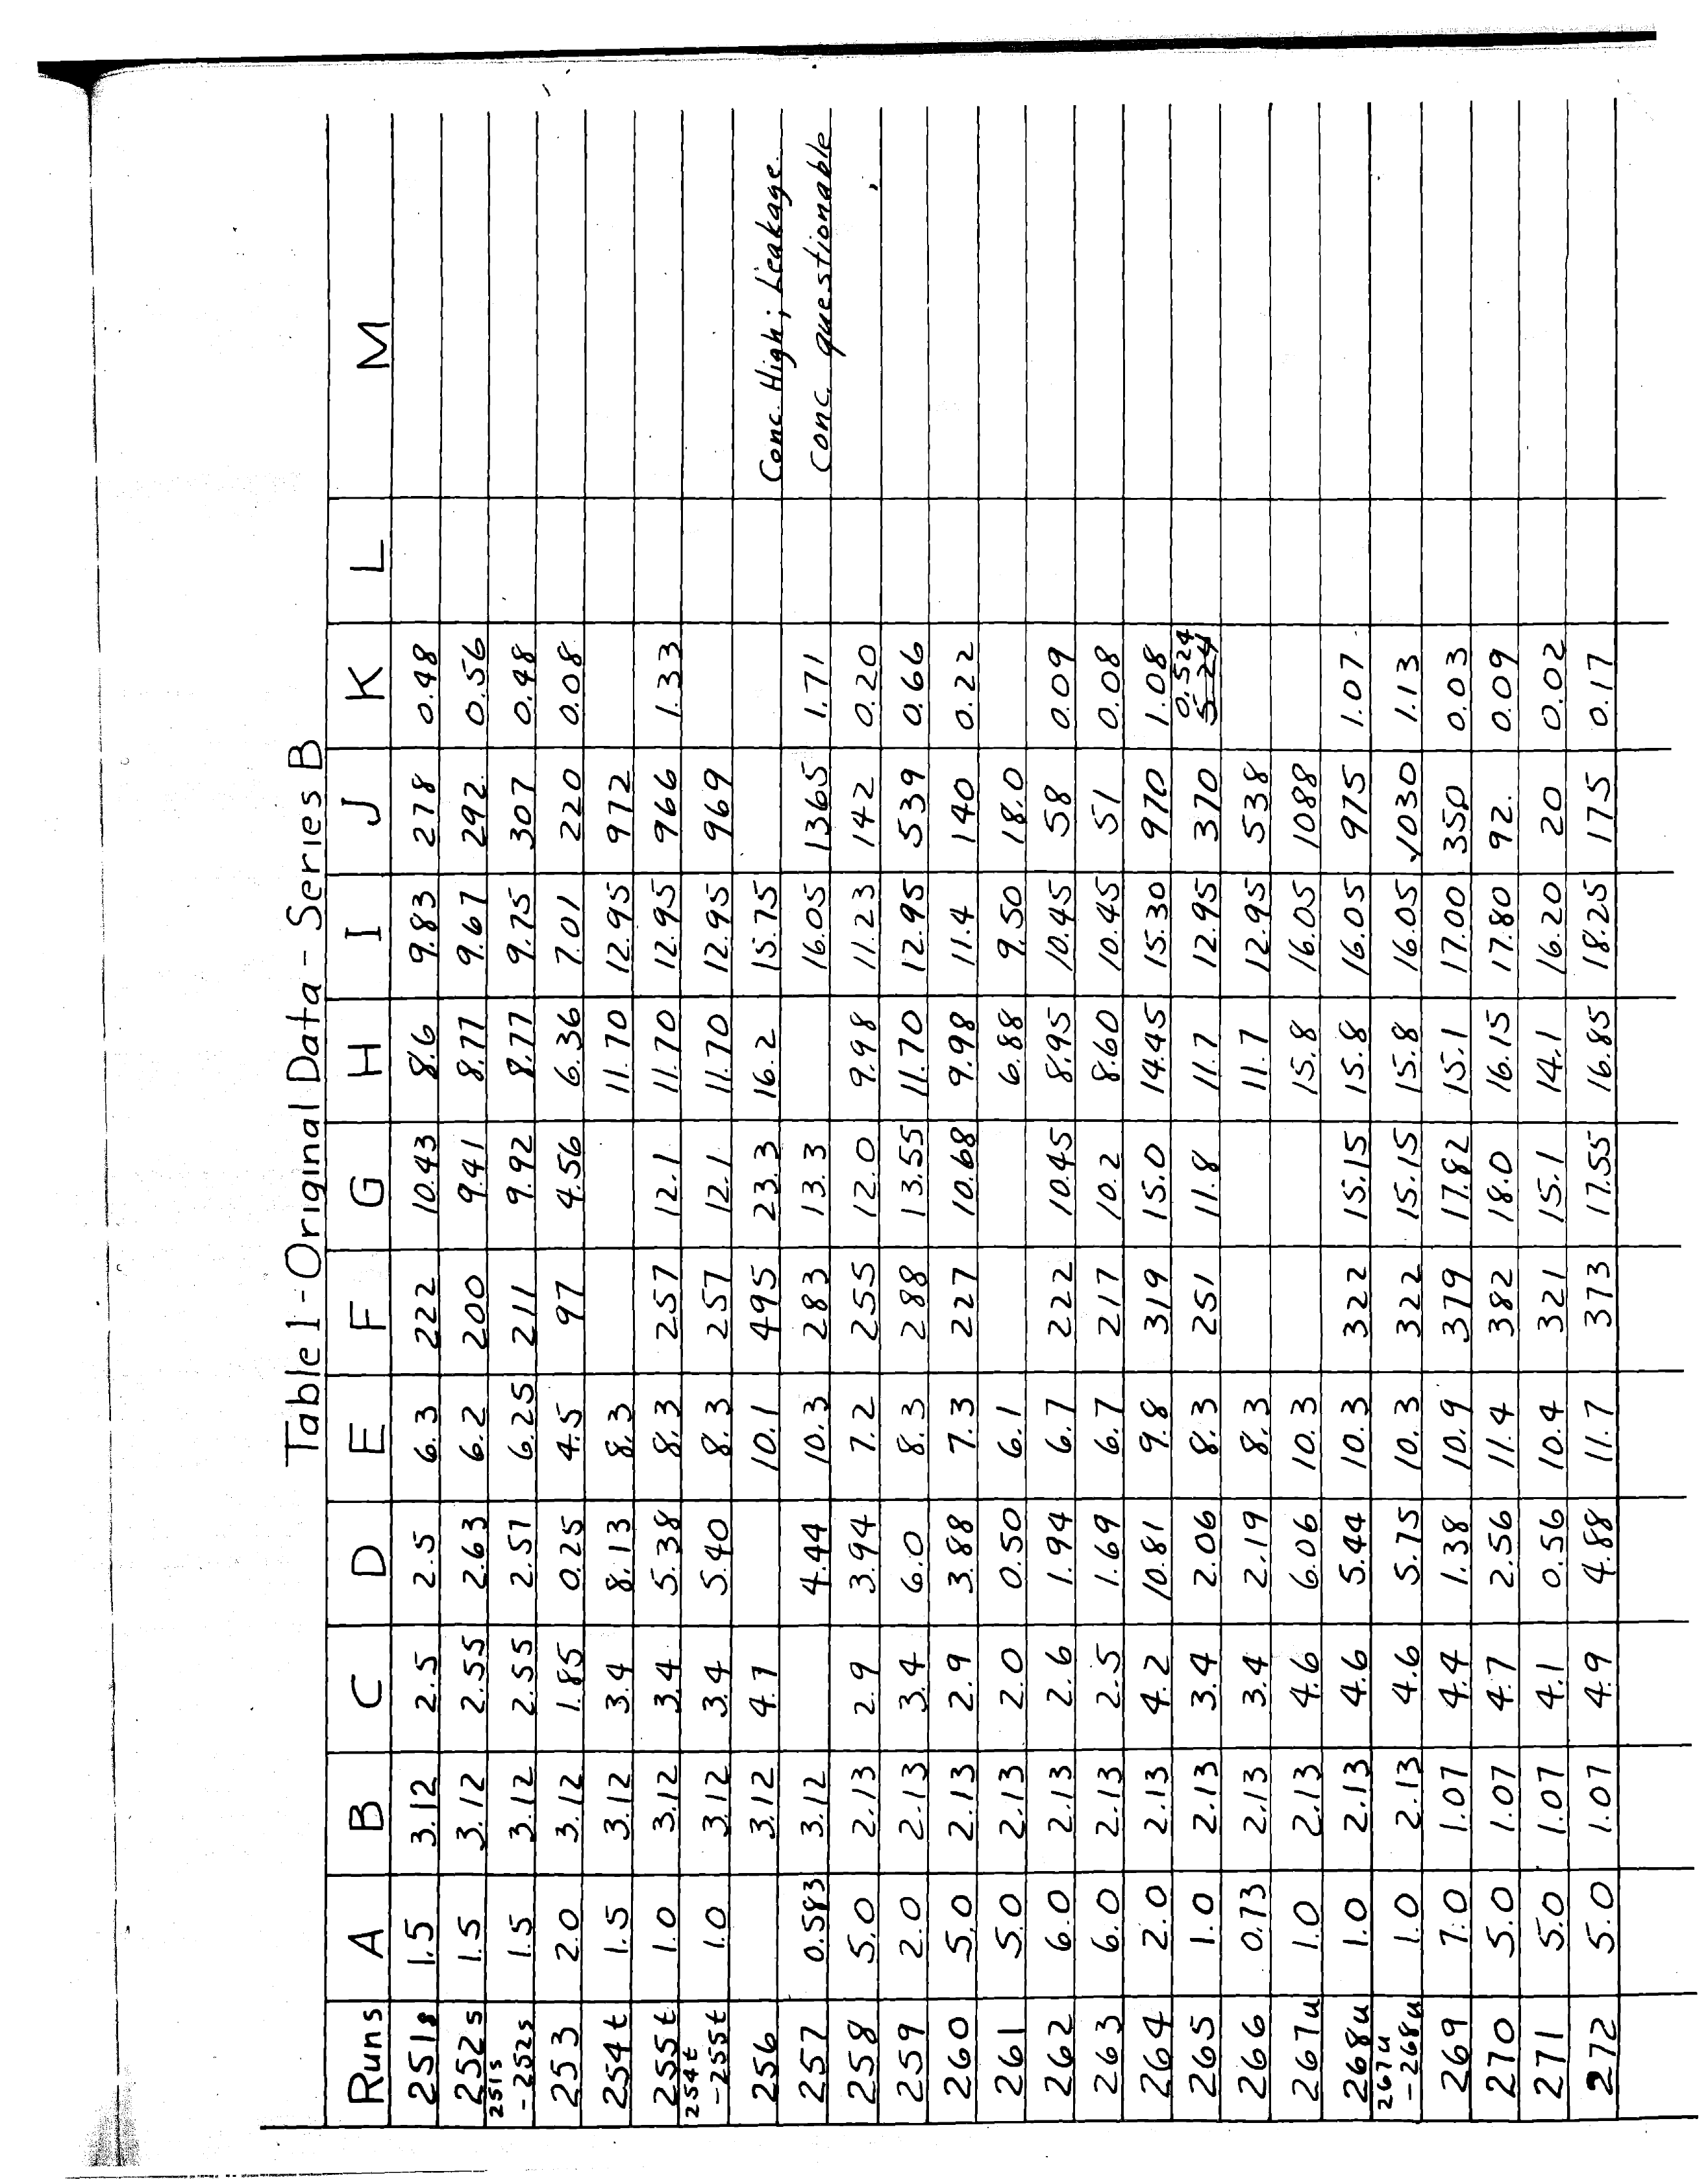 Table 1 - Original Data - Series B
Runs A B C D E F G H I J K L M
251s 1.5 3.12 2.5 2.5 6.3 222 10.43 8.6 9.83 278 0.48
252s 1.5 3.12 2.55 2.63 6.2 200 9.41 8.77 9.67 292. 0.56
251s - 252s 1.5 3.12 2.55 2.57 6.25 211 9.92 8.77 9.75 307 0.48
253 2.0 3.12 1.85 0.25 4.5 97 4.56 6.36 7.01 220 0.08
254t 1.5 3.12 3.4 8.13 8.3 11.70 12.95 972
255t 1.0 3.12 3.4 5.38 8.3 257 12.1 11.70 12.95 966 1.33
254t - 255t 1.0 3.12 3.4 5.40 8.3 257 12.1 11.70 12.95 969
256 3.12 4.7 10.1 495 23.3 16.2 15.75 Conc. High; Leakage
257 0.583 3.12 4.44 10.3 283 13.3 16.05 1365 1.71 Conc. questionable
258 5.0 2.13 2.9 3.94 7.2 255 12.0 9.98 11.23 142 0.20
259 2.0 2.13 3.4 6.0 8.3 288 13.55 11.70 12.95 539 0.66
260 5.0 2.13 2.9 3.88 7.3 227 10.68 9.98 11.4 140 0.22
261 5.0 2.13 2.0 0.50 6.1 6.88 9.50 18.0
262 6.0 2.13 2.6 1.94 6.7 222 10.45 8.95 10.45 58 0.09
263 6.0 2.13 2.5 1.69 6.7 217 10.2 8.60 10.45 51 0.08
264 2.0 2.13 4.2 10.81 9.8 319 15.0 14.45 15.30 970 1.08
265 1.0 2.13 3.4 2.06 8.3 251 11.8 11.7 12.95 370 0.524 5.24
266 0.73 2.13 3.4 2.19 8.3 11.7 12.95 538
267u 1.0 2.13 4.6 6.06 10.3 15.8 16.05 1088
268u 1.0 2.13 4.6 5.44 10.3 322 15.15 15.8 16.05 975 1.07
267u - 268u 1.0 2.13 4.6 5.75 10.3 322 15.15 15.8 16.05 1030 1.13
269 7.0 1.07 4.4 1.38 10.9 379 17.82 15.1 17.00 350 0.03
270 5.0 1.07 4.7 2.56 11.4 382 18.0 16.15 17.80 92. 0.09
271 5.0 1.07 4.1 0.56 10.4 321 15.1 14.1 16.20 20 0.02
272 5.0 1.07 4.9 4.88 11.7 373 17.55 16.85 18.25 175 0.17